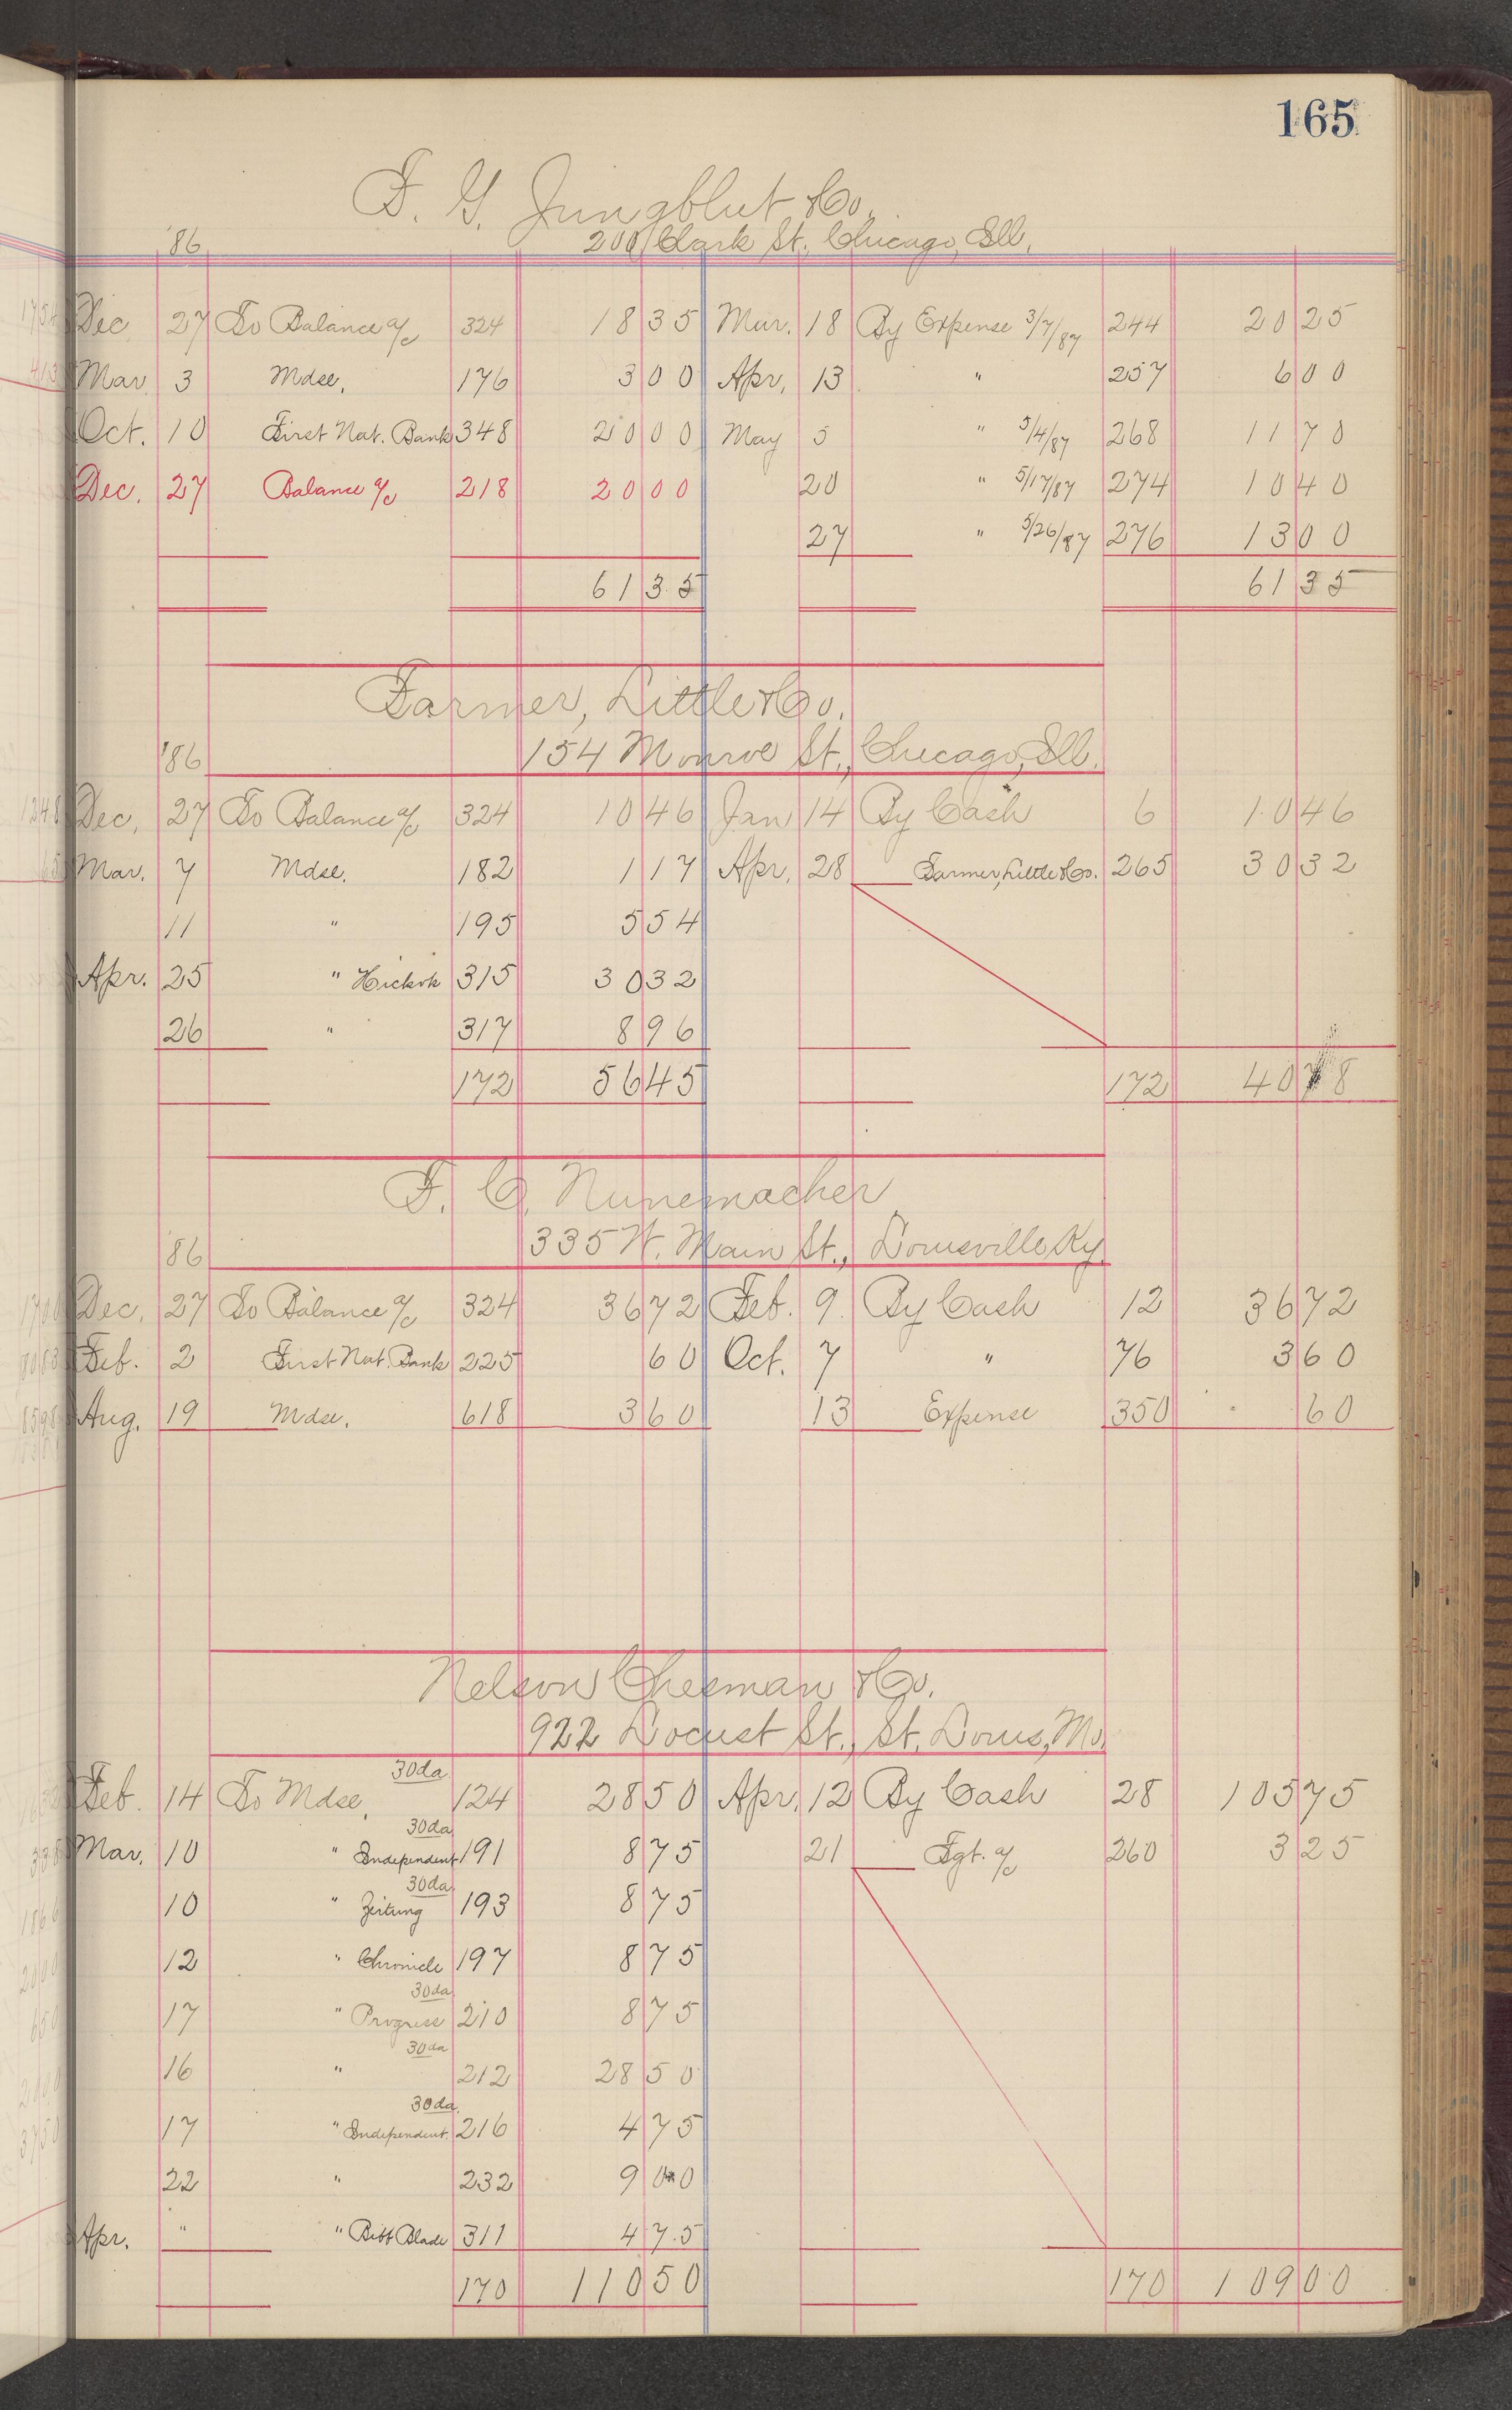 165
F. G. Jungblut & Co.
'86 200 Clark St. Chicago, Ill.
Dec. 27 To Balance a/c 324 18 35 Mar. 18 By Expense 3/7/87 244 20 25
Mar. 3 Mdse. 176 3 00 Apr. 13 " 257 6 00
Oct. 10 First Nat. Bank 348 20 00 May 5 " 5/4/87 268 11 70
Dec. 27 Balance a/c 218 20 00 20 " 5/17/87 274 10 40
27 " 5/26/87 276 13 00
61 35 61 35
Farmer, Little & Co.
'86 154 Monroe St., Chicago, Ill.
Dec. 27 To Balance a/c 324 10 46 Jan 14 By Cash 6 10 46
Mar. 7 Mdse. 182 1 17 Apr. 28 Farmer, Little & Co. 265 30 32
11 " 195 5 54
Apr. 25 " Hickok 315 30 32
26 " 317 8 96
172 56 45 172 40 78
F. C. Nunemacher
'86 335 W. Main St., Louisville Ky.
Dec. 27 To Balance a/c 324 36 72 Feb. 9 By Cash 12 36 72
Feb. 2 First Nat. Bank 225 60 Oct. 7 " 76 3 60
Aug. 19 Mdse. 618 3 60 13 Expense 350 60
Nelson Chesman & Co.
922 Locust St., St. Louis, Mo.
30da
Feb. 14 To Mdse. 124 28 50 Apr. 12 By Cash 28 105 75
30da
Mar. 10 " Independent 191 8 75 21 Fgt. a/c 260 3 25
30da
10 " Zeitung 193 8 75
12 " Chronicle 197 8 75
30da
17 " Progress 210 8 75
30da
16 " 212 28 50
30da.
17 " Independent. 216 4 75
22 " 232 9 00
Apr. " " Bibb Blade 311 4 75
170 110 50 170 109 00